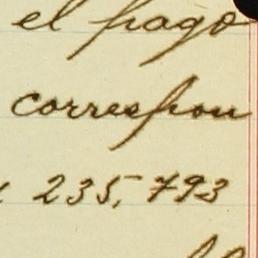 el pago
correspon
235,793